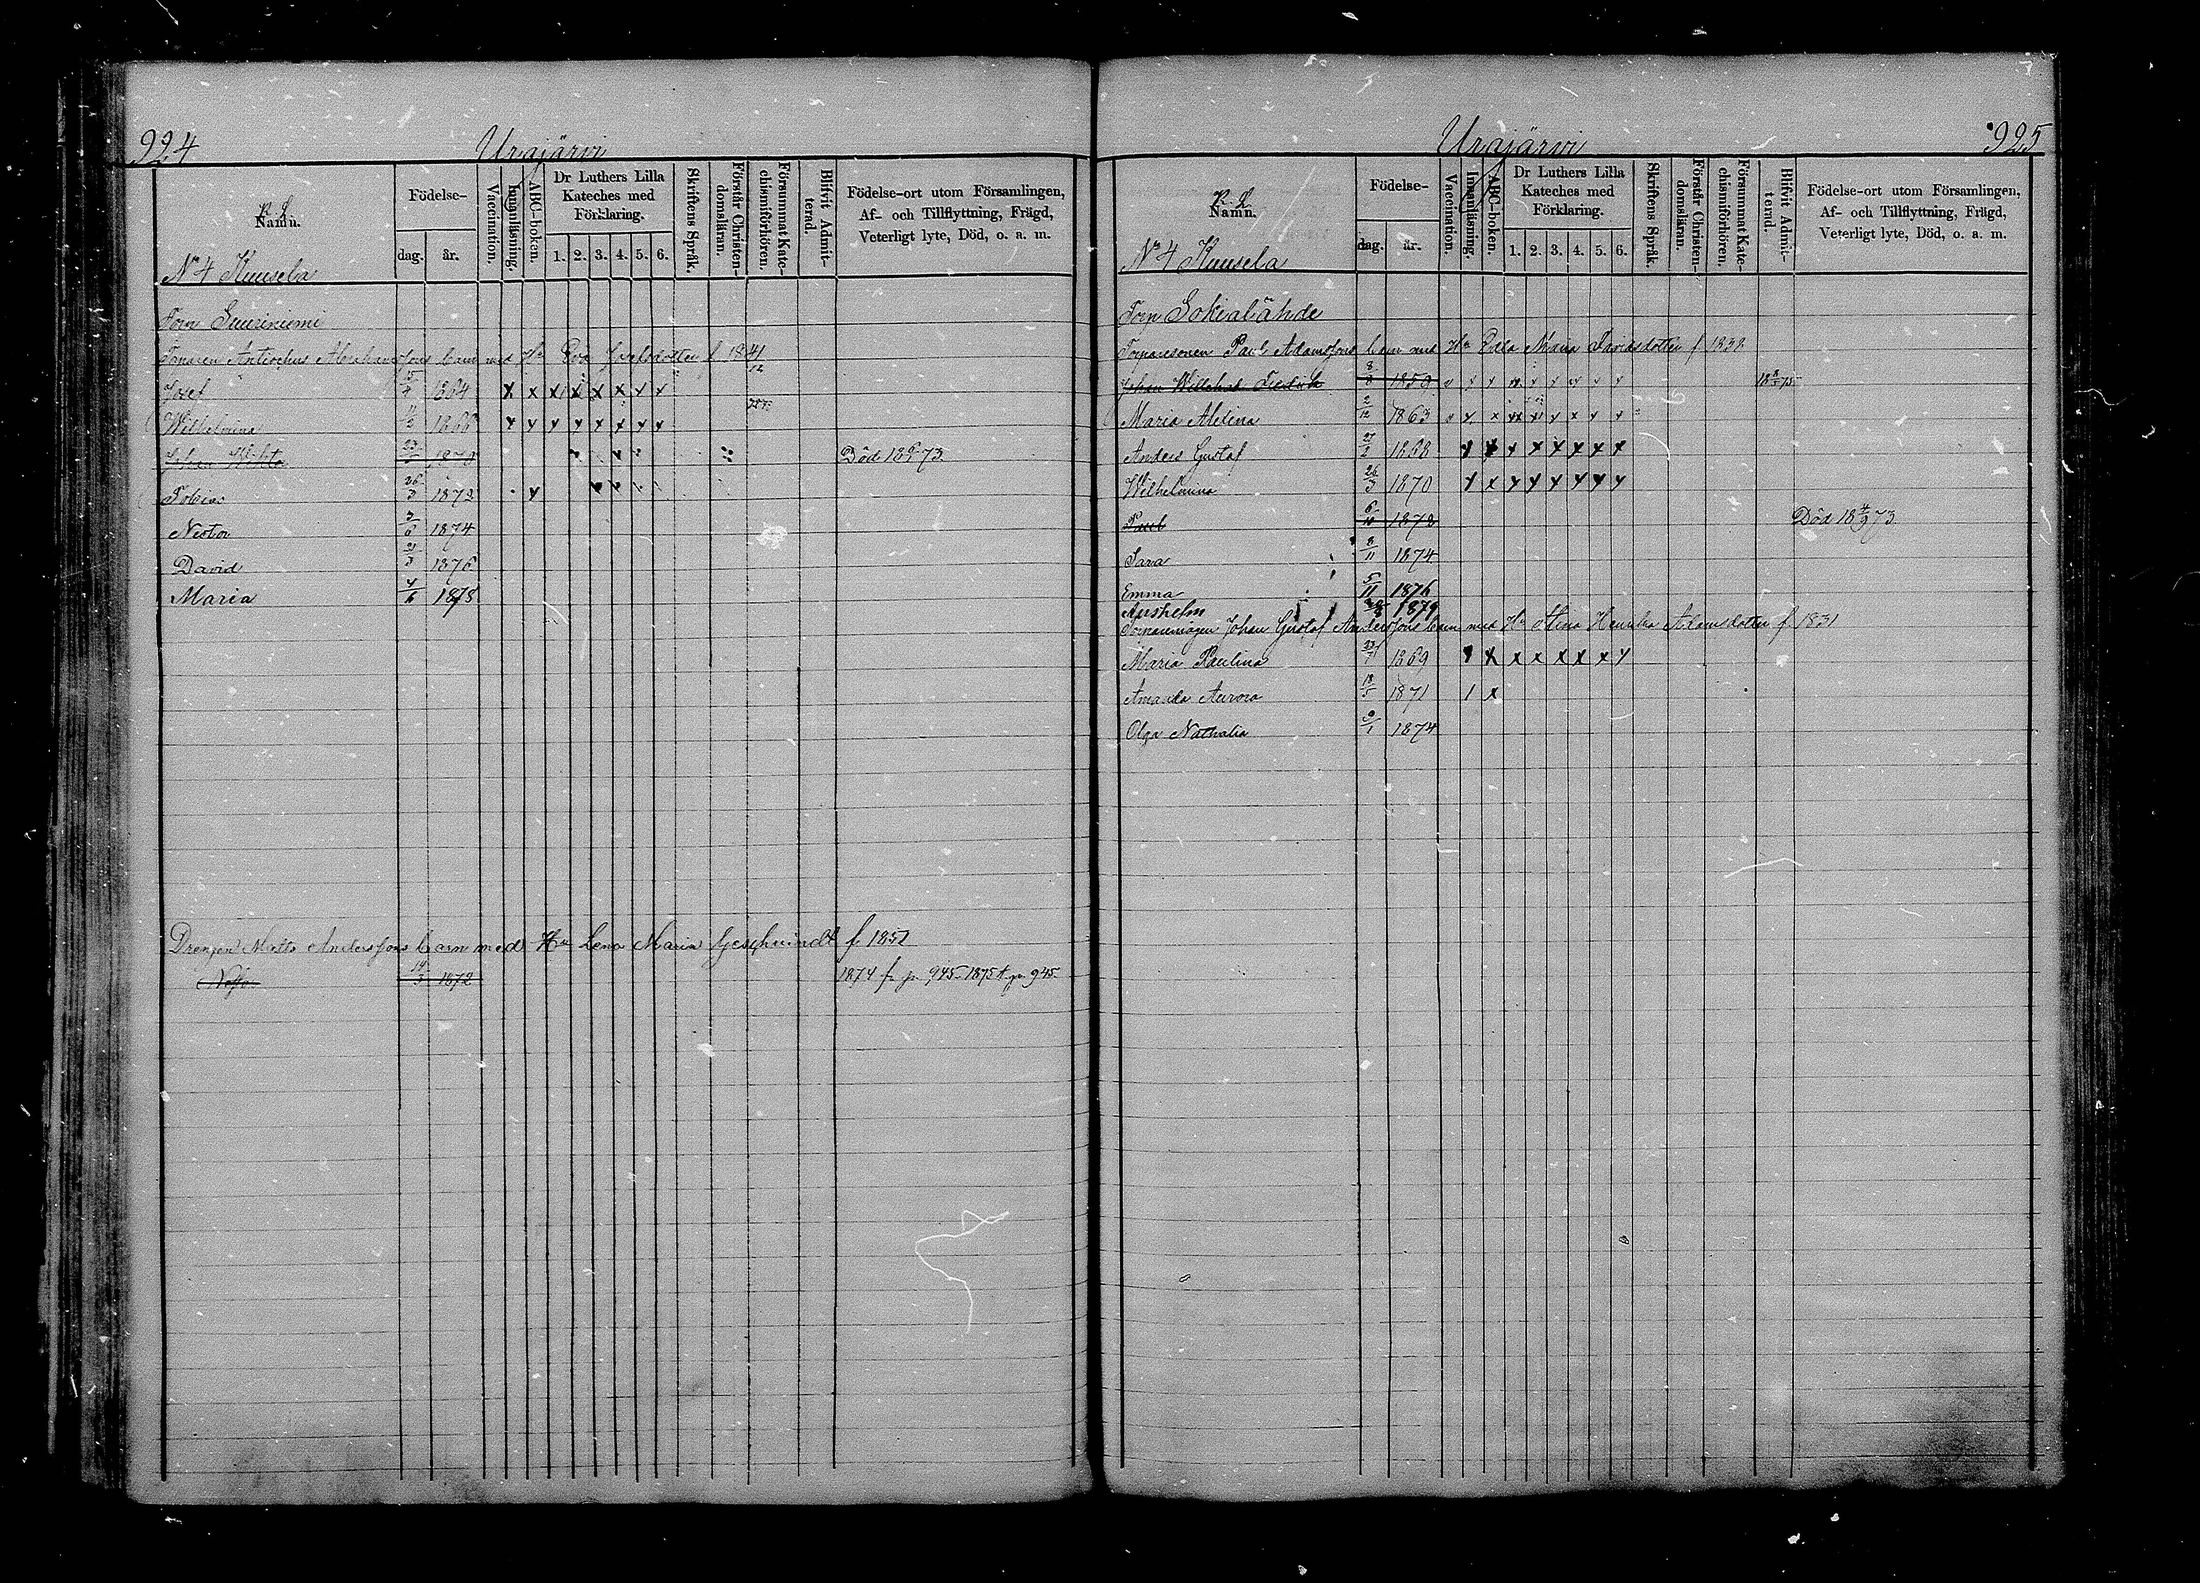 924 Urajärvi
Namn. Födelse- dag. år. Vaccination. Innanläsning. ABC-boken. Dr Luthers Lilla Kateches med Förklaring. 1. 2. 3. 4. 5. 6. Skriftens Språk. Förstår Christendomsläran. Försummat Katechismiförhören. Blifvit Admitterad. Födelse-ort utom Församlingen, Af- och Tillflyttning, Frägd, Veterligt lyte, Död, o. a. m.
No 4 Kuusela
Torp Suuriniemi
Torparen Antiochus Abrahamssons barn med Hu Eva Joelsdotter f 1841
Josef 1864 x x x x x x x x
Wilhelmina 1868 x x x x x x x x
Johan 1870 Död 73
Tobias 26/3 1872
Nestor 1874
David 21/3 1876
Maria 4/6 1878
Drengen Matts Anderssons barn med Hu Lena Maria f. 1851
14/3 1872 1874 fr p. 945 1875 t. p. 945
Urajärvi 925
Namn. Födelse- dag. år. Vaccination. Innanläsning. ABC-boken. Dr Luthers Lilla Kateches med Förklaring. 1. 2. 3. 4. 5. 6. Skriftens Språk. Förstår Christendomsläran. Försummat Katechismiförhören. Blifvit Admitterad. Födelse-ort utom Församlingen, Af- och Tillflyttning, Frägd, Veterligt lyte, Död, o. a. m.
No 4 Kuusela
Torp Sokialähde
Torparesonen Paul Adamssons barn med Hu Maria Davidsdotter f 1838
Johan Wilhelm Fredrik 75
Maria 2/12 1863
Anders Gustaf 27/2 1868 x x x x x x x x
Wilhelmina 26/3 1870 x x x x x x x x
Paul 6/10 1872 Död 18 4/9 73
Sara 8/11 1874
Emma 5/11 1876
1879
Torparemågen Johan Gustaf Anderssons barn med Hu Henrika Adamsdotter f 1831
Maria Paulina 1869 x x x x x x x x
Amanda Aurora 18/5 1871 / x
Olga Nathalia 9/1 1874